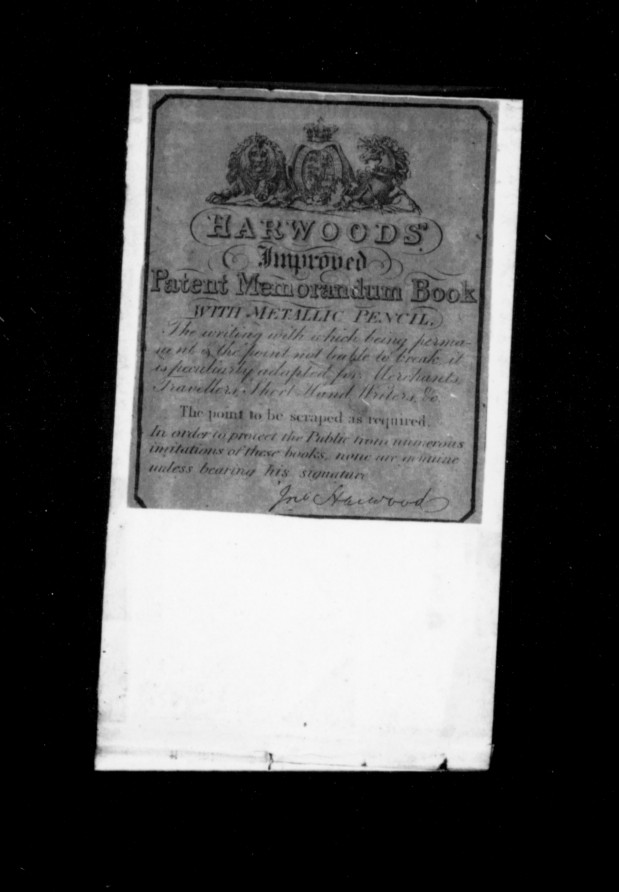 HARWOODS'
Improved
Patent Memorandum Book
WITH METALLIC PENCIL.
The writing with which being perma-
nent & the point not liable to break it
is peculiarly adapted for Merchants,
Travellers, Short Hand Writers, &c.
The point to be scraped as required.
In order to protect the Public from numerous
imitations of these books, none are genuine
unless bearing his signature
Jno Harwood